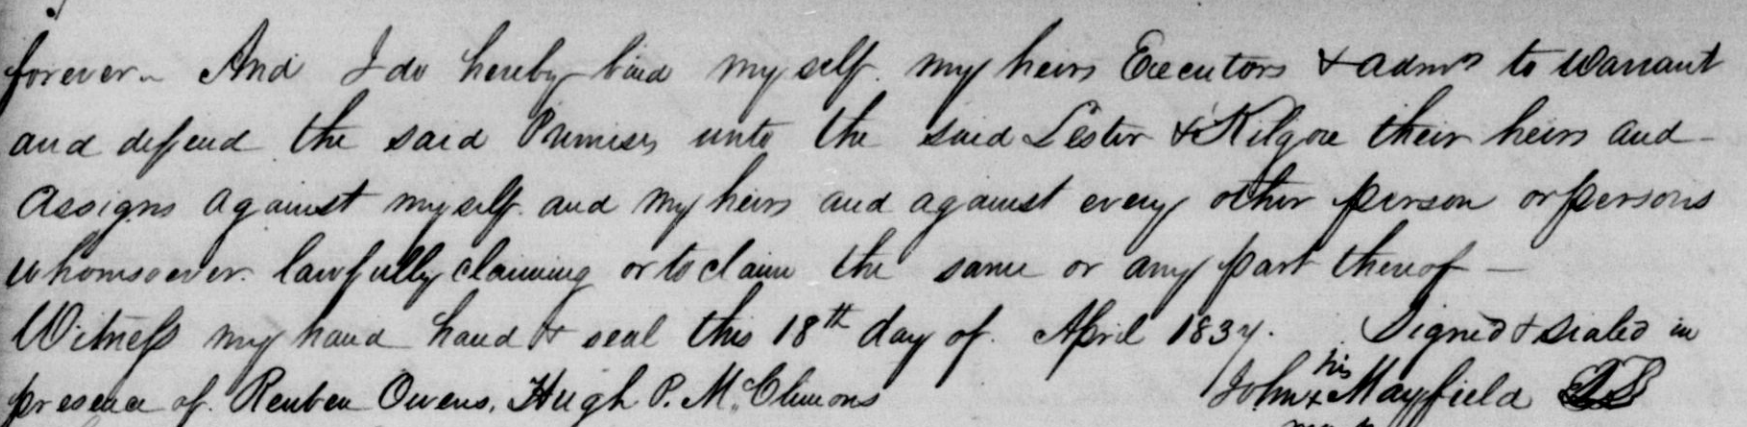 forever. And I do hereby bind myself. my heirs Executors & admrs to warrant
and defend the said Premises unto the said Lester & Kilgore their heirs and
assigns against myself and my heirs and against every other person or persons
whomsoever. lawfully claiming or to claim the same or any part thereof —
Witness my hand hand & seal this 18th day of April 1837. Signed & sealed in
presence of. Reuben Owens, Hugh P. McClimons John his x Mayfield